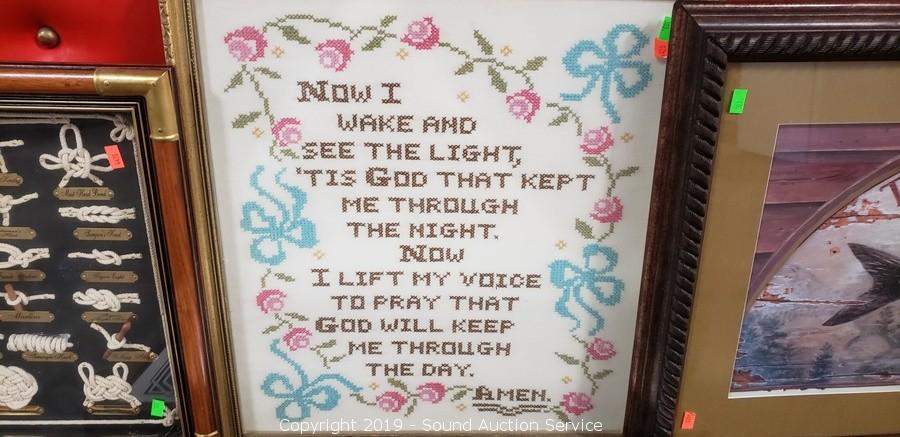 Now I
wake and
see the light,
'tis God that kept
me through
the night.
Now
I lift my voice
to pray that
God will keep
me through
the day.
Amen.
Copyright 2019 - Sound Auction Service